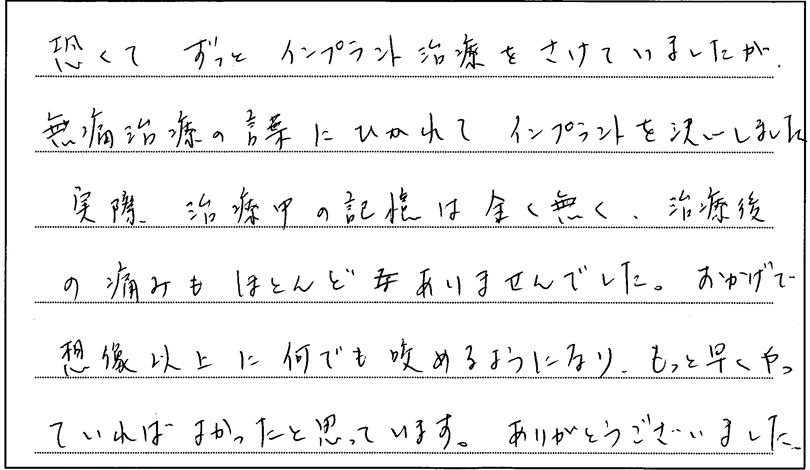 恐くて ずっと インプラント治療をさけていましたが、
無痛治療の言葉にひかれて インプラントを決心しました
実際、治療中の記憶は全く無く、治療後
の痛みもほとんどありませんでした。おかげで
想像以上に何でも咬めるようになり、もっと早くやっ
ていれば よかったと思っています。ありがとうございました。